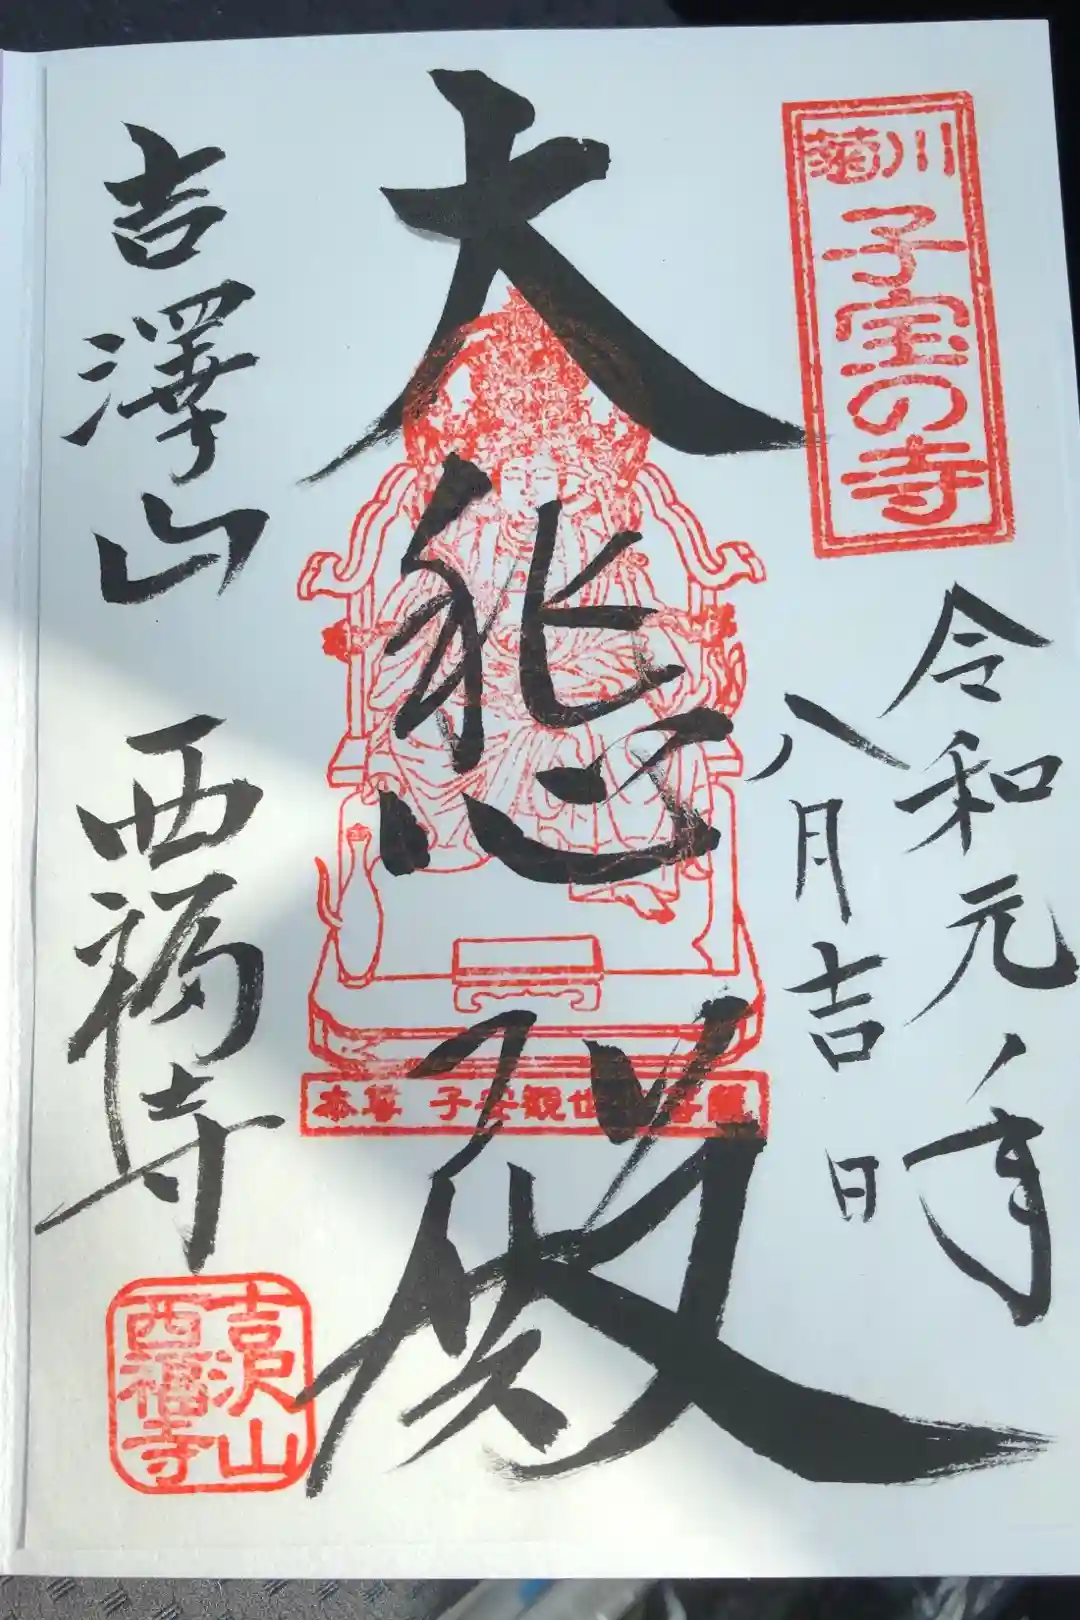 菊川
子宝の寺
令和元年
八月吉日
大悲殿
本尊 子安觀世音菩薩
吉澤山 西福寺
吉沢山
西福寺